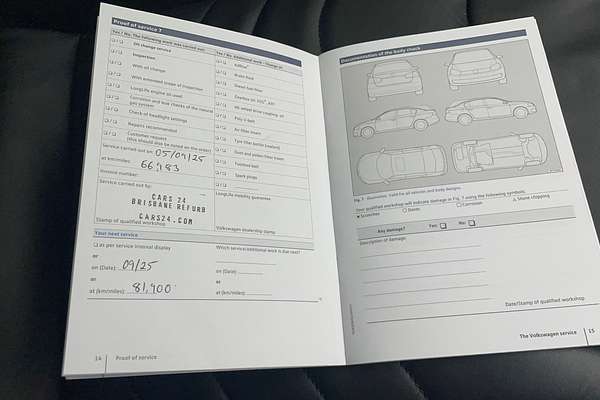 Proof of service 7
Yes / No The following work was carried out:
Yes / No Additional work – Change of:
Oil change service
Inspection
With oil change
With extended scope of inspection
LongLife engine oil used
Corrosion and leak checks of the natural gas system
Check of headlight settings
Repairs recommended
Customer request
(this should also be noted on the order)
Brake fluid
Diesel fuel filter
Poly-V-belt
Air filter insert
Tyre filler bottle (sealant)
Dust and pollen filter insert
Toothed belt
Spark plugs
Service carried out on: 05/04/25
at km/miles: 66,983
Invoice number:
Service carried out by:
CARS 24
BRISBANE REFURB
CARS24.COM
Stamp of qualified workshop
LongLife mobility guarantee
Volkswagen dealership stamp
Your next service
as per service internal display
or
on (Date): 09/25
or
at (km/miles): 81,900
Which service/additional work is due next?
on (Date):
or
at (km/miles):
14 Proof of service
Documentation of the body check
Fig. 7 Illustration: Valid for all vehicles and body designs.
Your qualified workshop will indicate damage in Fig. 7 using the following symbols:
Scratches
Dents
Corrosion
Stone chipping
Any damage? Yes: No:
Description of damage:
Date/Stamp of qualified workshop
The Volkswagen service 15